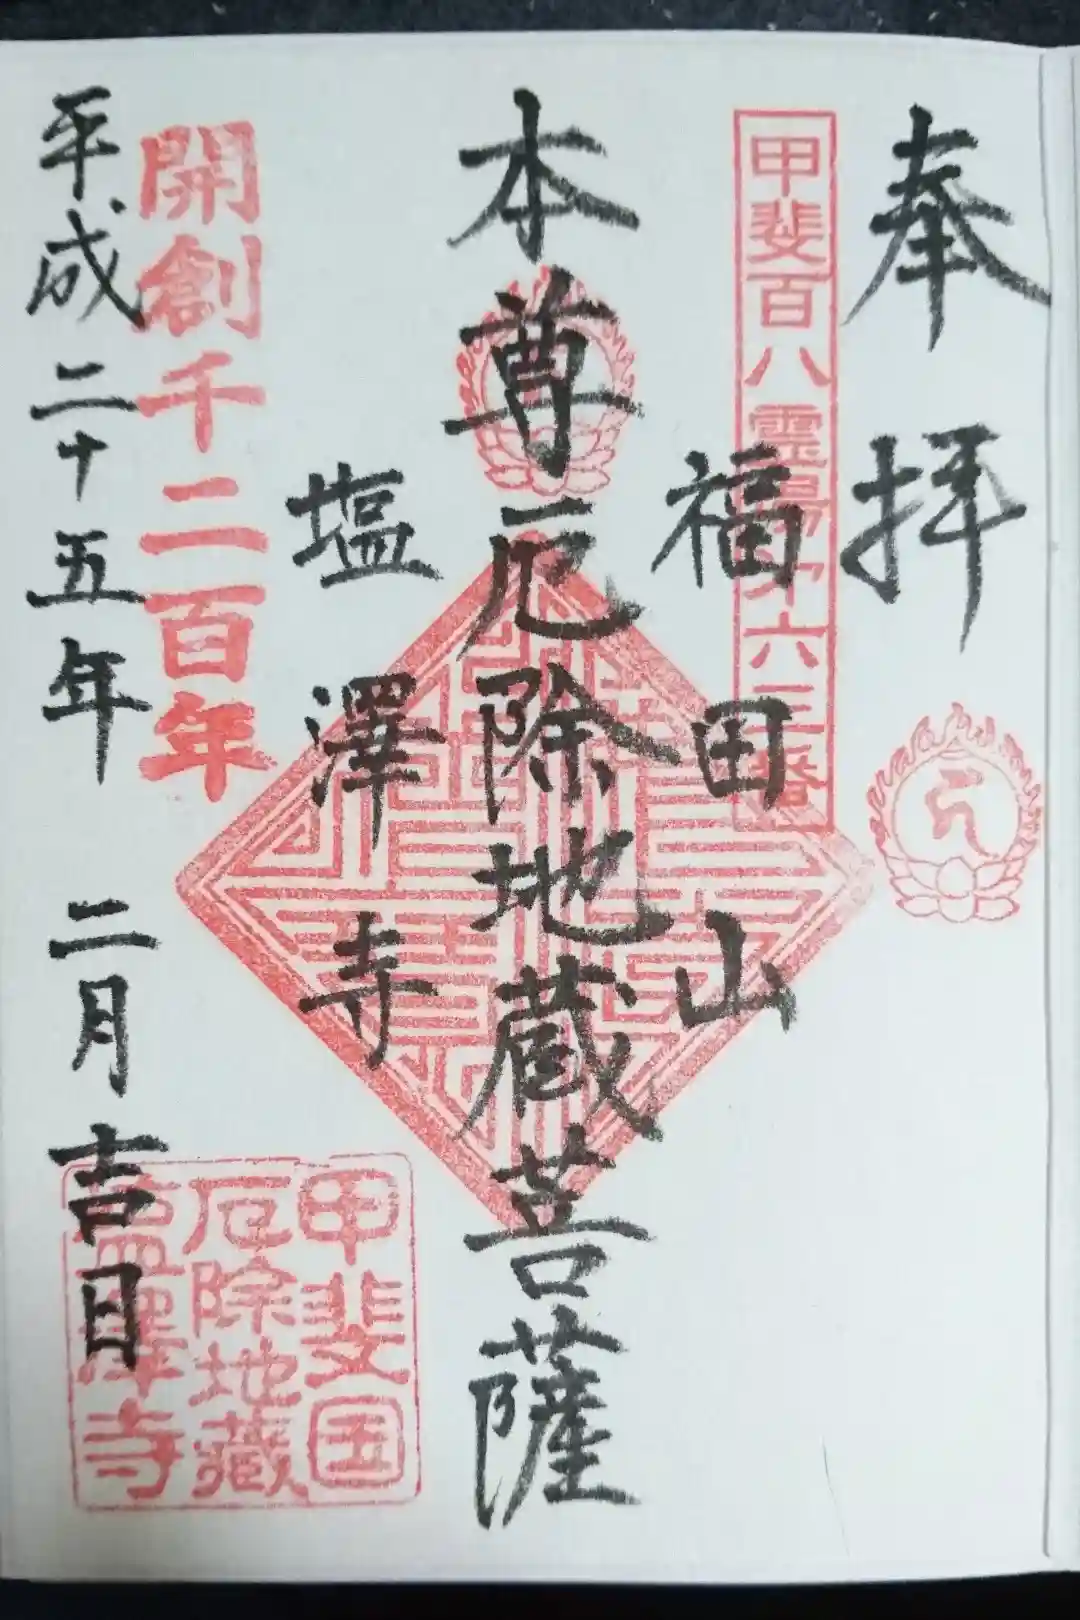 奉拝
甲斐百八霊場才六三番
福田山
本尊厄除地蔵菩薩
塩澤寺
開創千二百年
平成二十五年 二月吉日
甲斐国
厄除地蔵
塩澤寺